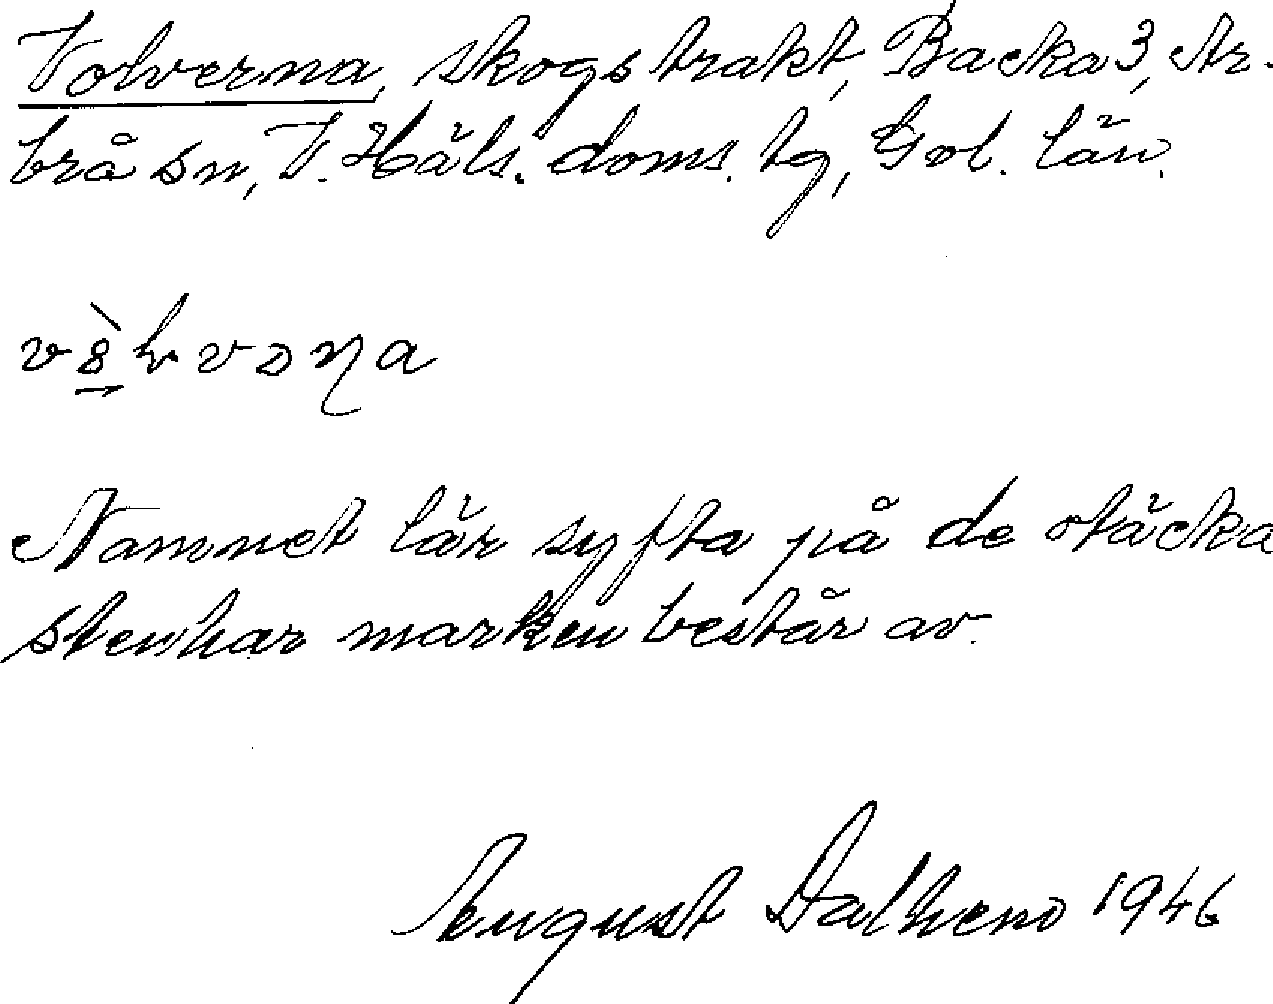 Volverna, skogstrakt, Backa 3, Ar-
brå sn, V. Häls. doms. tg, Gvl. län.
Namnet lär syfta på de otäcka
stenhar marken består av.
August Dalhero 1946